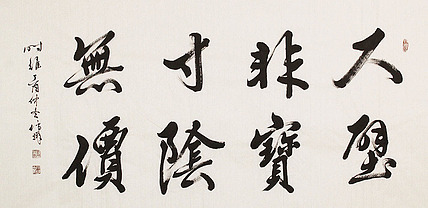 尺璧
非寶
寸陰
無價